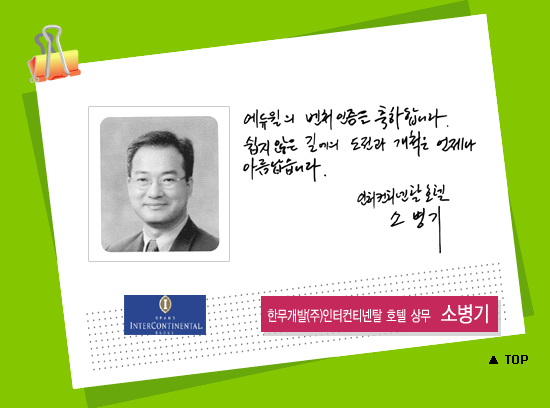 에듀윌의 벤처인증은 축하합니다.
쉽지않은 길에의 도전과 개척은 언제나
아름답습니다.
인터컨티넨탈 호텔
소병기
INTERCONTINENTAL
한무개발(주)인터컨티넨탈 호텔 상무 소병기
▲ TOP